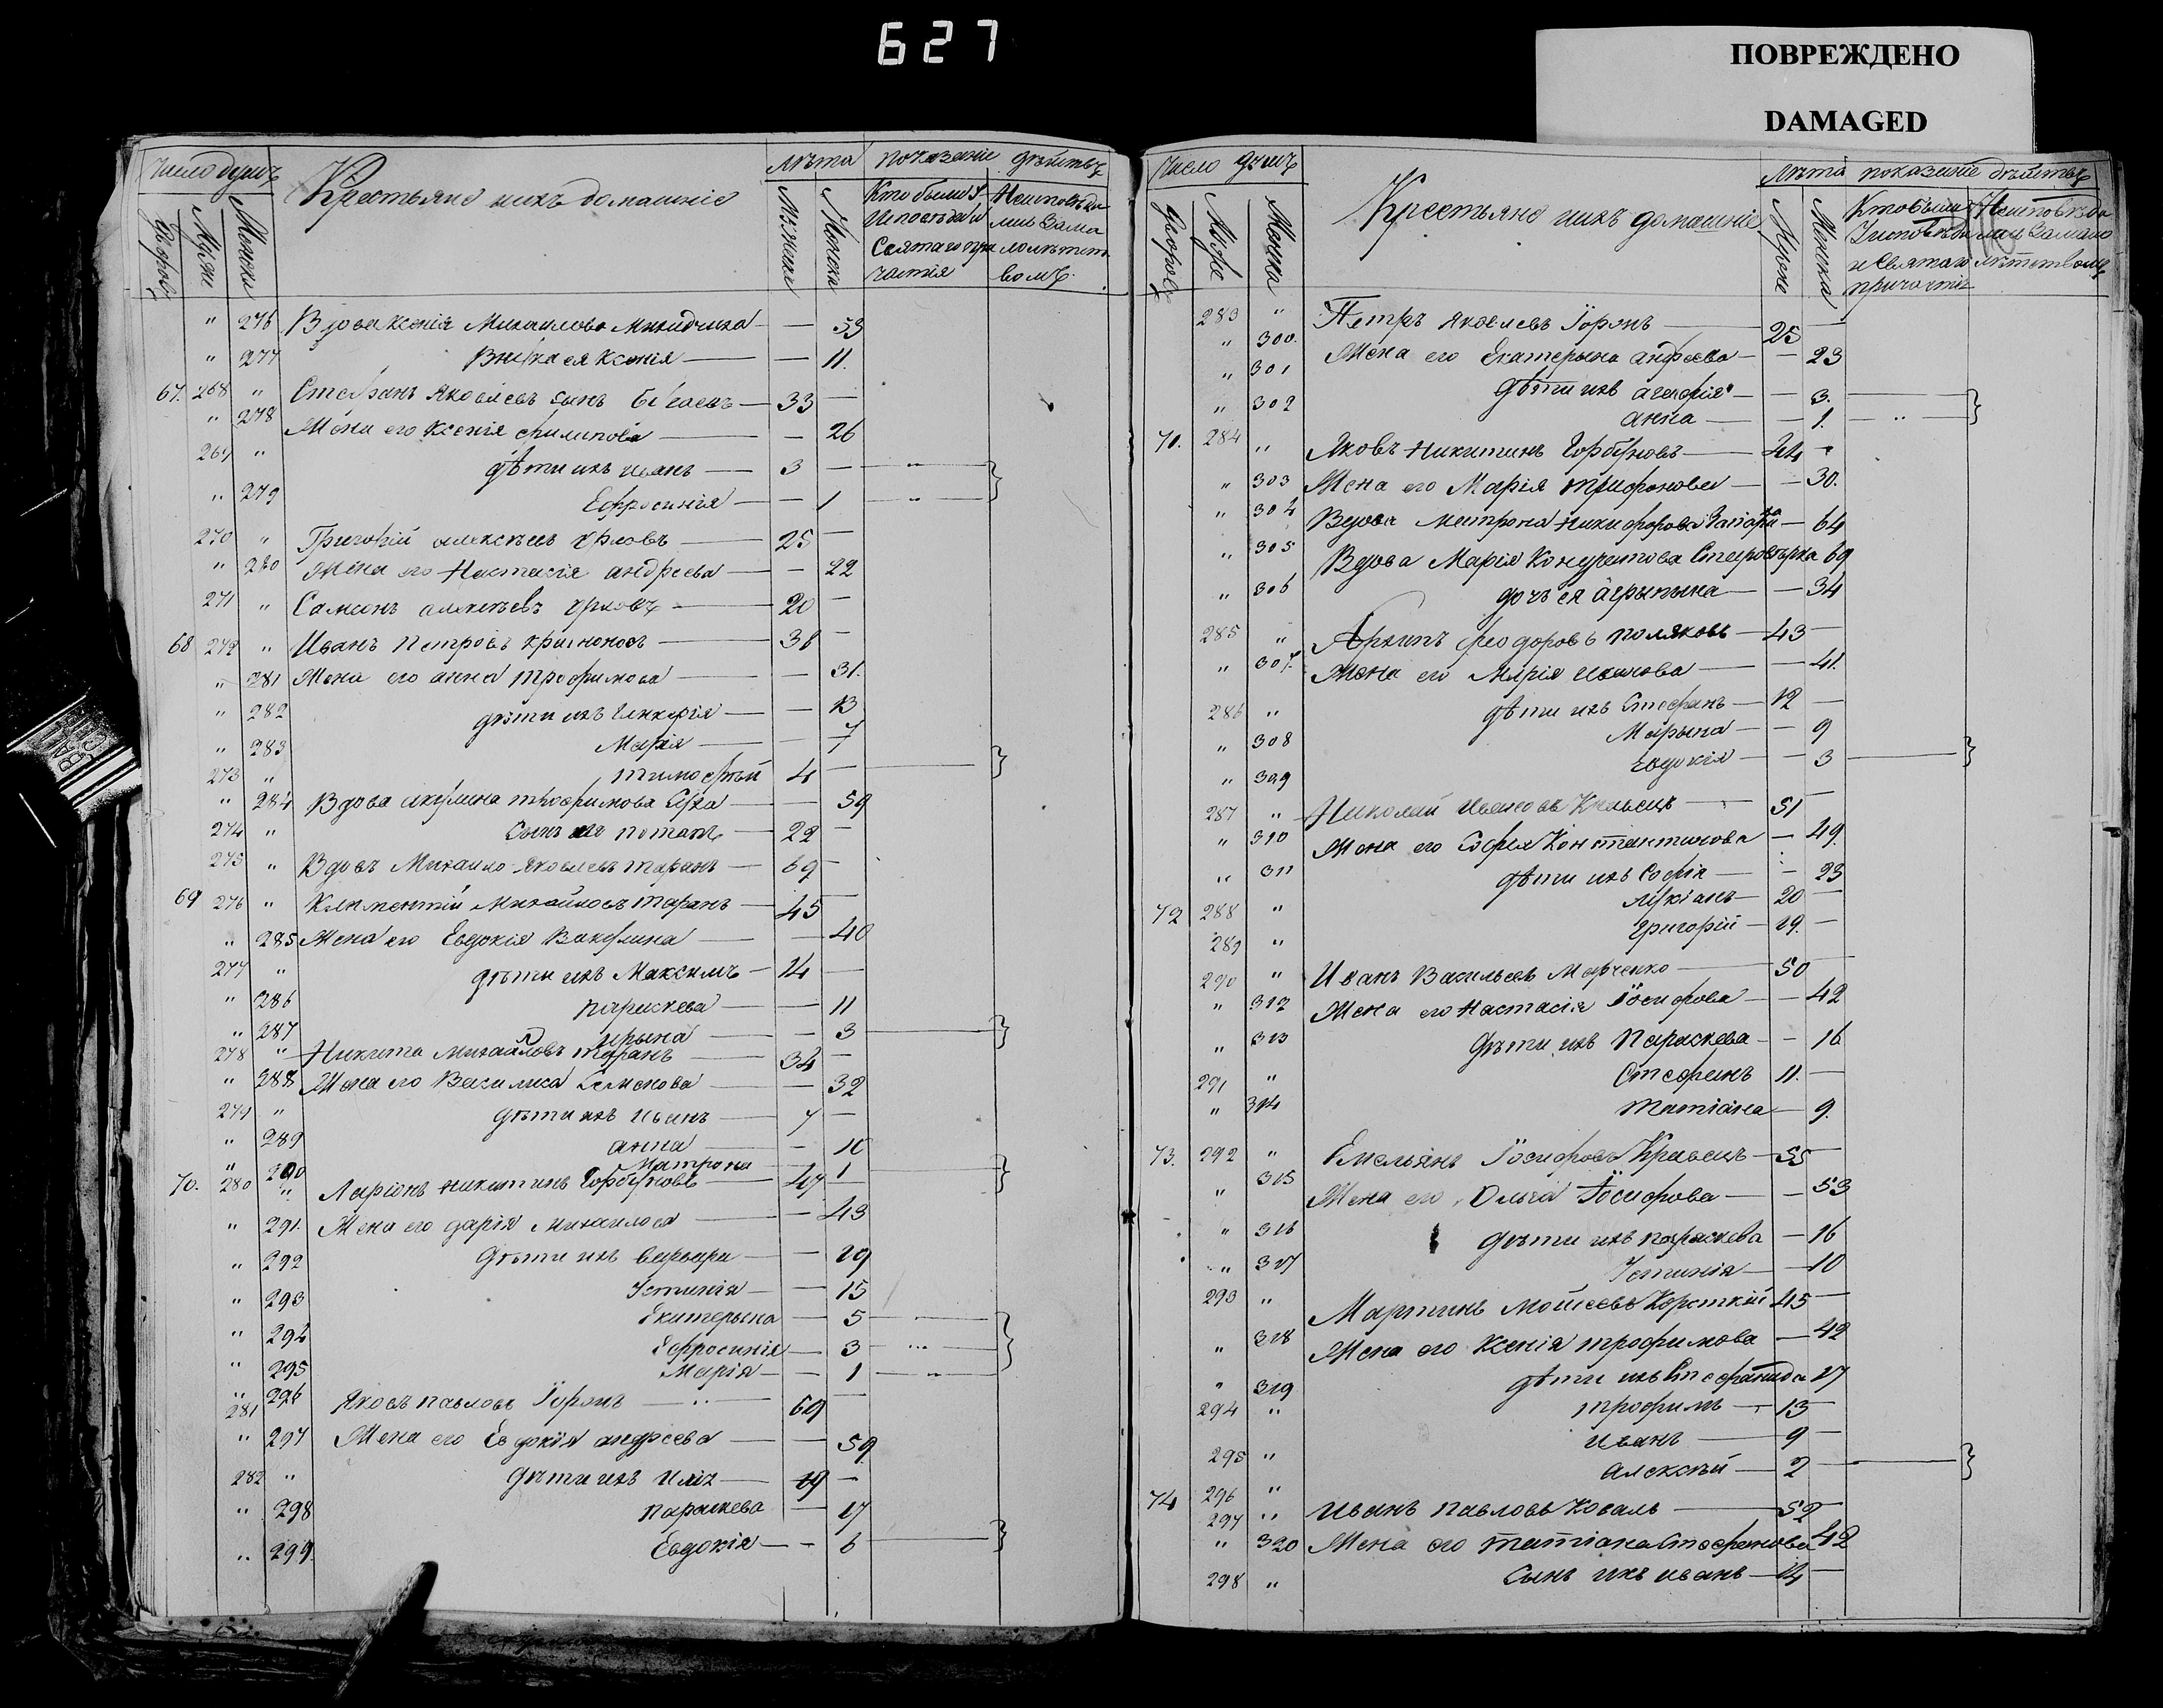 627
ПОВРЕЖДЕНО
DAMAGED
Число душъ
Крестьяне и ихъ домашніе
Лѣта показаніе дѣйствъ
Дворовъ Мужи Женска
Мужски Женска
Кто были У Исповѣди и Святаго причастія
Неисповѣдались Замалолѣтством.
" 276 Вдова Ксенія Михаилова — 53
" 277 Внучка ея Ксенія — — 11.
67. 268 " Стефанъ Яковлевъ сынъ — 33 —
" 278 Жена его Ксенія Филипова — — 26
269 " дѣти ихъ иванъ — 3 — "
" 279 Ефросинія — — 1 "
270 " Григорій алексѣевъ Орловъ — 25 —
" 280 Жена его Настасія андреева — — 22
271 " Самсонъ алексѣевъ Орловъ — 20 —
68 272 " Иванъ Петровъ — 38 —
" 281 Жена его анна трофимова — — 31.
" 282 дѣти ихъ — — 13
" 283 Марія — — 7
273 " тимофѣй 4 —
" 284 Вдова акулина трофимова — — 59
274 " Сынъ ея потапъ — 22 —
275 " Вдовъ Михаило Яковлевъ таранъ — 69 —
69 276 " Климентій Михайловъ таранъ — 45 —
" 285 Жена его Евдокія — — 40
277 " дѣти ихъ Максимъ — 14 —
" 286 параскева — — 11
" 287 ирына — — 3
278 " Никита Михайловъ таранъ — 34 —
" 288 Жена его Василиса Семенова — — 32
279 " дѣти ихъ иванъ — 7 —
" 289 анна — — 10
" 290 Матрона — — 1
70. 280 " Ларіонъ никитинъ Горбуновъ — 47 —
" 291. Жена его дарія михаилова — — 43
" 292 дѣти ихъ варвара — — 19
" 293 Устинія — — 15
" 294 Екатерына — — 5
" 295 Ефросинія — — 3
" 296 Марія — — 1
281 Яковъ павловъ — 69 —
" 297 Жена его Евдокія андреева — — 59
282 " дѣти ихъ илія — 19 —
" 298 параскева — — 17
" 299. Евдокія — — 6
Число душъ
Крестьяне и ихъ домашніе
Лѣта показаніе дѣйствъ
Дворовъ Мужи Женска
Мужски Женска
Кто были У исповѣди и Святаго причастія
Неисповѣдались За малолѣтствомъ
283 " Петръ Яковлевъ — 25 —
" 300. Жена его Екатерына андреева — — 23
" 301 дѣти ихъ — — 3.
" 302 анна — — 1. "
71. 284 " Яковъ Никитинъ Горбуновъ — 44 —
" 303 Жена его Марія трифонова — — 30.
" 304 Вдова матрона никифорова — 64
" 305 Вдова Марія 69
" 306 дочь ея агрыпына — — 34
285 " Архипъ феодоровъ поляковъ — 43 —
" 307. Жена его Марія — — 41.
286 " дѣти ихъ Стефанъ — 12 —
" 308 Марына — — 9
" 309 Евдокія — — 3
287 " Николай ивановъ Кравецъ — 51 —
" 310 Жена его Софія Константинова — 49.
" 311 дѣти ихъ Софія — — 23
72 288 " Лукіанъ — 20 —
289 " Григорій — 19. —
290 " Иванъ Васильевъ Марченко — 50 —
" 312 Жена его Настасія Іосифова — — 42
" 313 дѣти ихъ Параскева — — 16
291 " Стефанъ 11. —
" 314 татіана — 9.
73. 292 " Емельянъ Іосифовъ Кравецъ — 55 —
" 315 Жена его Ольга Іосифова — — 53
" 316 дѣти ихъ параскева — 16
" 317 Устинія — — 10
293 " Мартинъ Мойсеевъ Короткій 45 —
" 318 Жена его Ксенія трофимова — 42
" 319 дѣти ихъ Стефанида 17
294 " трофимъ — 13 —
295 " иванъ — 9 —
296 " алексѣй — 2 —
74 297 " Иванъ Павловъ Коваль — 52 —
" 320 Жена его татіана Стефанова 42
298 " Сынъ ихъ иванъ — 14 —